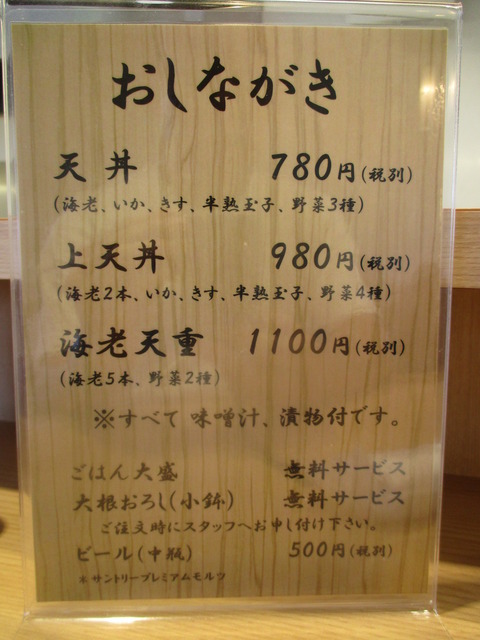 おしながき
天丼 780円(税別)
(海老、いか、きす、半熟玉子、野菜3種)
上天丼 980円(税別)
(海老2本、いか、きす、半熟玉子、野菜4種)
海老天重 1100円(税別)
(海老5本、野菜2種)
※すべて 味噌汁、漬物付です。
ごはん大盛 無料サービス
大根おろし(小鉢) 無料サービス
ご注文時にスタッフへお申し付け下さい。
ビール(中瓶) 500円(税別)
※サントリープレミアムモルツ